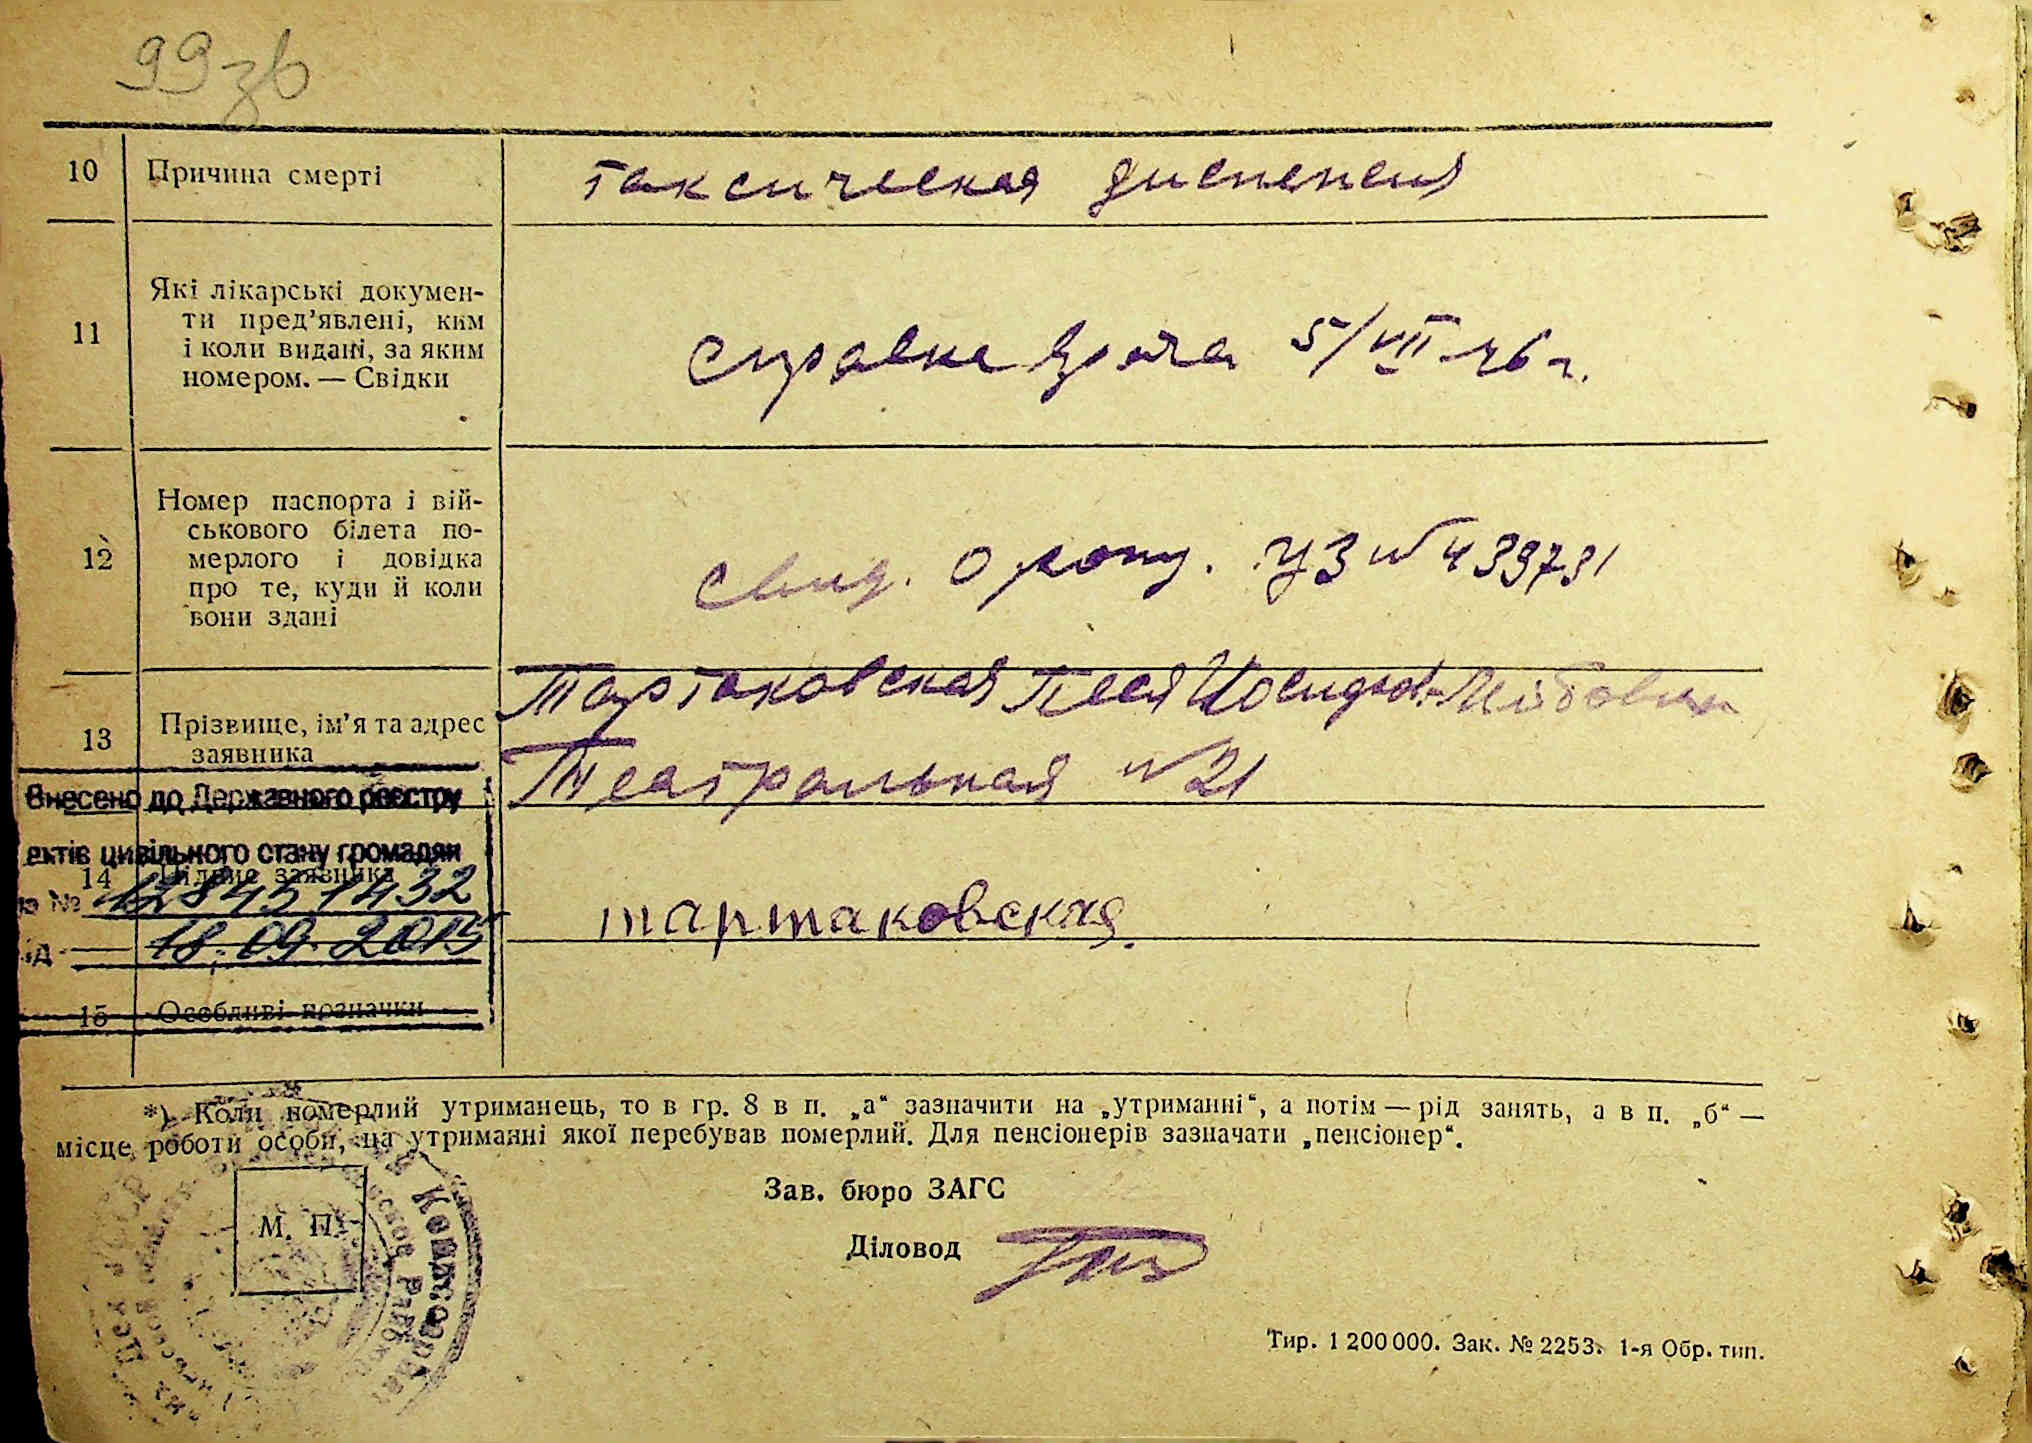 99зв
10 Причина смерті таксическая диспепсия
11 Які лікарські докумен-
ти пред’явлені, ким
і коли видані, за яким
номером. — Свідки
справка врача 5/VII-46 г.
12 Номер паспорта і вій-
ськового білета по-
мерлого і довідка
про те, куди й коли
вони здані
свид. о рожд. УЗ № 439731
13 Прізвище, ім’я та адрес
заявника
Тартаковская Песя
Театральная №21
Внесено до Державного реєстру
актів цивільного стану громадян
14 Підпис заявника
№ 1284571432
тартаковская.
18.09.2015
15 Особливі позначки
*) Коли померлий утриманець, то в гр. 8 в п. „а“ зазначити на „утриманні“, а потім — рід занять, а в п. „б“ —
місце роботи особи, на утриманні якої перебував померлий. Для пенсіонерів зазначати „пенсіонер“.
М. П.
Зав. бюро ЗАГС
Діловод
Тир. 1 200 000. Зак. № 2253. 1-я Обр. тип.